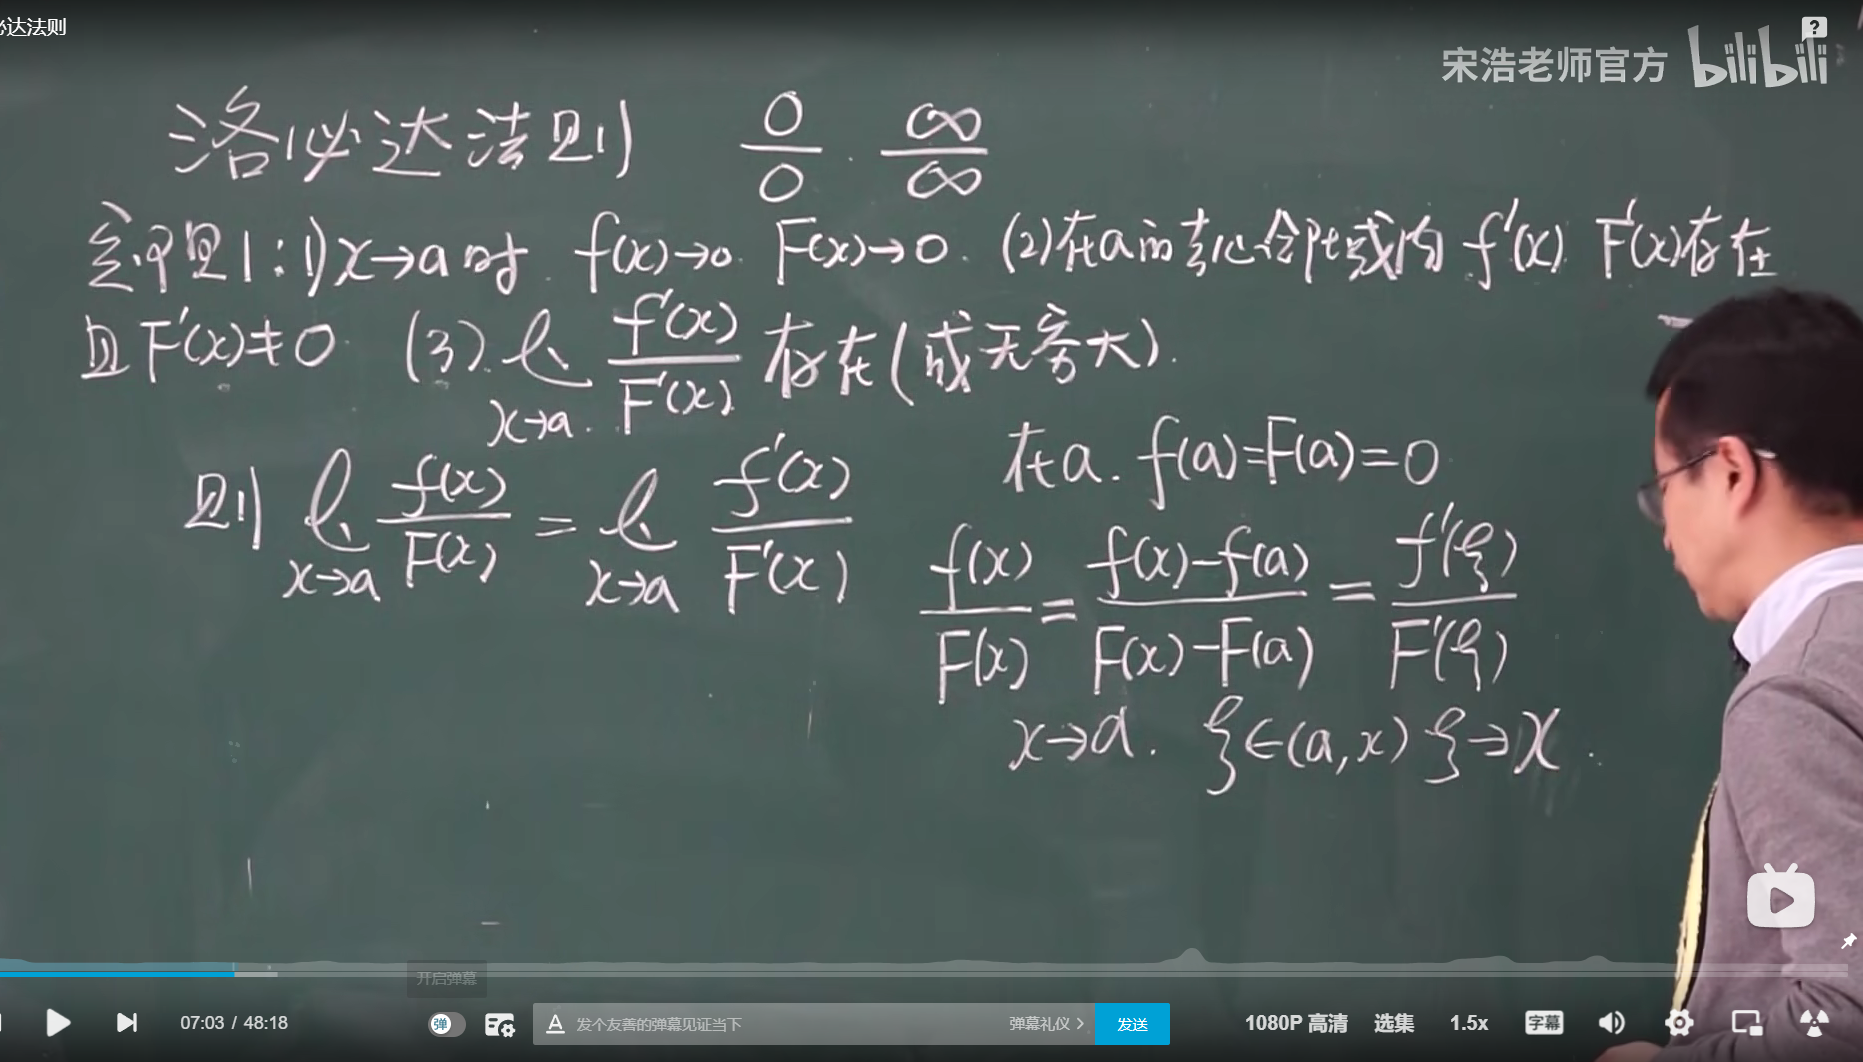 必达法则
宋浩老师官方 bilibili
?
洛必达法则 0/0 . ∞/∞
定理1:1) x→a时. f(x)→0. F(x)→0. (2)在a的去心邻域内 f'(x) F'(x)存在
且F'(x)≠0 (3). lim x→a. f'(x)/F'(x) 存在(或无穷大).
则 lim x→a f(x)/F(x) = lim x→a f'(x)/F'(x)
在a. f(a)=F(a)=0
f(x)/F(x) = f(x)-f(a)/F(x)-F(a) = f'(ξ)/F'(ξ)
x→a. ξ∈(a,x) ξ→x.
开启弹幕
07:03 / 48:18
弹
A 发个友善的弹幕见证当下
弹幕礼仪 >
发送
1080P 高清
选集
1.5x
字幕